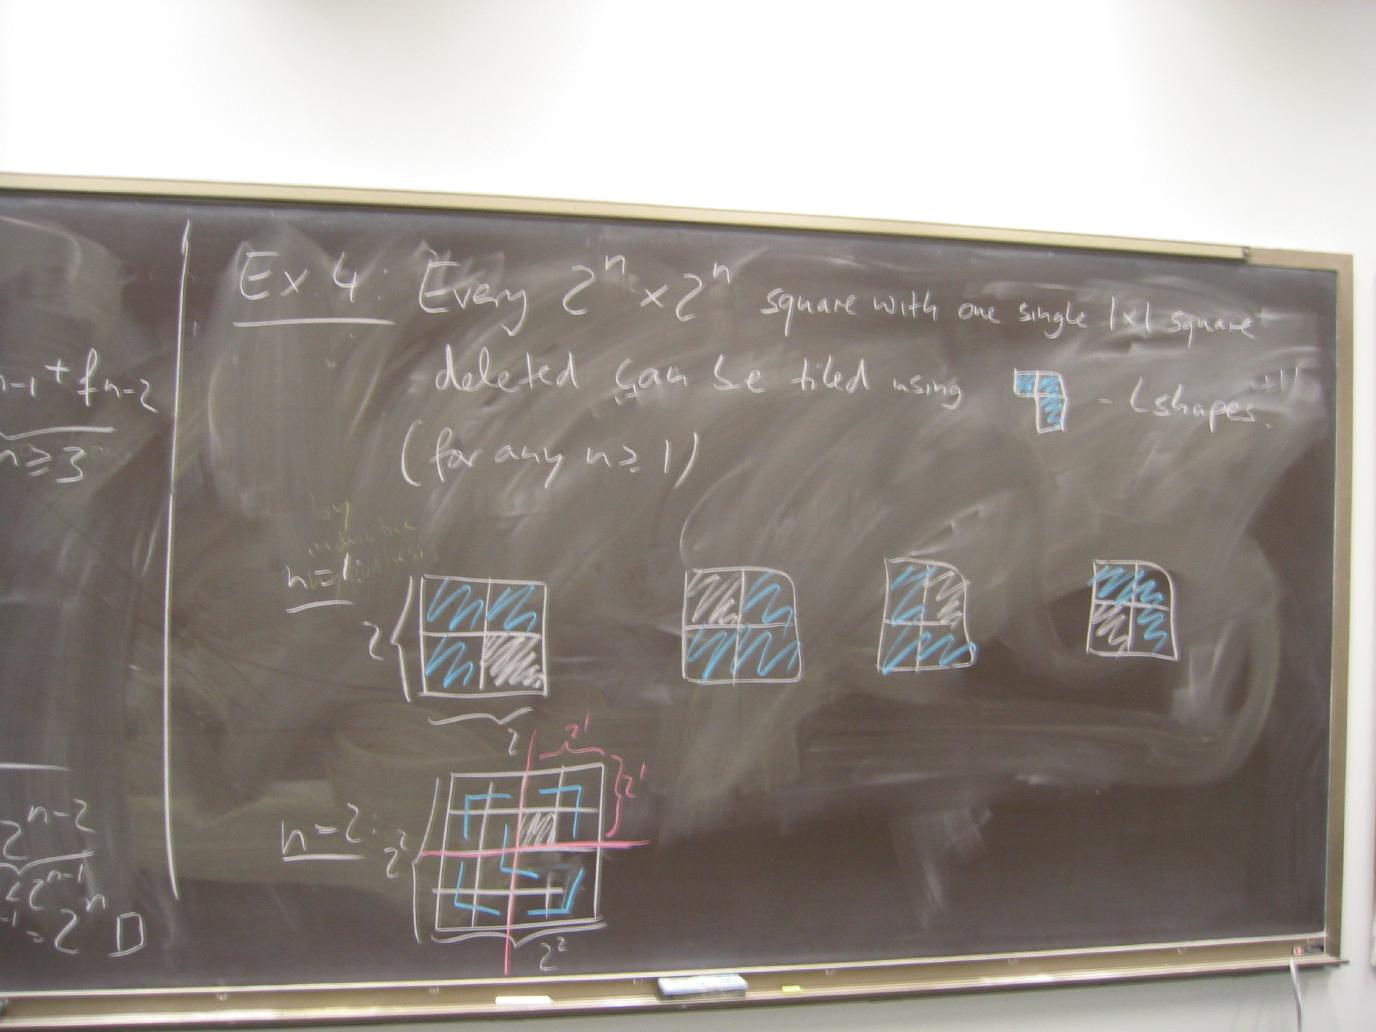 n-1 + fn-2
n ≥ 3
2^n-2
2^n-1
= 2^n □
Ex 4: Every 2^n × 2^n square with one single 1×1 square
deleted can be tiled using - L shapes.
(for any n ≥ 1)
by
n=1
2
2
2^1
2^1
n=2:
2^2
2^2